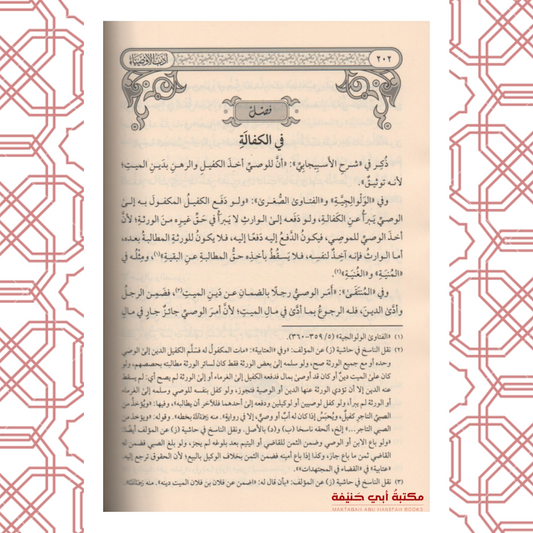 ٢٠٢
أدب الأوصياء
فصل
في الكفالة
ذُكِر في «شرح الأسبيجابي»: «أنَّ للوصيِّ أخذَ الكفيلِ والرهنِ بدَينِ الميتِ؛
لأنه توثيقٌ».
وفي «الوَلْوالِجيَّة» و«الفتاوى الصُّغرى»: «ولو دفَع الكفيلُ المكفولَ به إلى
الوصيِّ يَبرأُ عن الكفالةِ، ولو دفَعه إلى الوارثِ لا يَبرأُ في حقِّ غيرِه منَ الورثةِ؛ لأنَّ
أخذَ الوصيِّ للموصِي، فيكونُ الدفعُ إليه دَفعًا إليه، فلا يكونُ للورثةِ المطالبةُ بعده،
أما الوارثُ فإنه آخِذٌ لنفسِه، فلا يَسقُطُ بأخذِه حقُّ المطالبةِ عن البقيةِ»(١)، ومِثلُه في
«المُنية» و«الغُنية»(٢).
وفي «المُنتقَى»: «أمَر الوصيُّ رجلًا بالضمانِ عن دَينِ الميتِ(٣)، فضَمِن الرجلُ
وأدَّى الدينَ، فله الرجوعُ بما أدَّى في مالِ الميتِ؛ لأنَّ أمرَ الوصيِّ جائزٌ جارٍ في مالِ
(١) «الفتاوى الولوالجية» (٥/ ٣٥٩-٣٦٠).
(٢) نقل الناسخ في حاشية (ز) عن المؤلف: «وفي «العتابية»: «مات المكفول له فسلَّم الكفيل الدين إلى الوصي
وحده أو مع جميع الورثة صح، ولو سلمه إلى بعض الورثة فقط كان لسائر الورثة مطالبته بحصصهم، ولو
كان على الميت دين أو كان قد أوصى بمال فدفعه الكفيل إلى الغرماء أو إلى الورثة لم يصح أي: لم يسقط
عنه الدين إلا أن تؤدي الورثة عنها الدين أو الوصية فتجوز، ولو كفل بنفس للوصي وسلمه إلى الغرماء
أو الورثة لم يبرأ، ولو كفل لوصيين أو لوكيلين ودفعه إلى أحدهما فللآخر أن يطالبه»، وفيها: «ويؤخذ من
الصبي التاجر كفيلٌ، ويُحبَسُ إذا كان له أبٌ أو وصيٌّ، إلا في رواية». منه بخطه». وقوله: «ويؤخذ من
الصبي التاجر ...» إلخ، ألحقه ناسخا (ب) و(د) بالأصل. ونقل الناسخ في حاشية (ز) عن المؤلف أيضًا:
«ولو باع الابن أو الوصي وضمن الثمن للقاضي أو اليتيم بعد بلوغه لم يجز، ولو باع الصبي فضمن له
القاضي ثمن ما باع جاز، وكذا إذا باع أمينه فضمن الثمن بخلاف الوكيل بالبيع؛ لأن الحقوق ترجع إليه.
«عتابية» في «القضاء في المجتهدات»».
(٣) نقل الناسخ في حاشية (ز) عن المؤلف: «بأن قال له: «اضمن عن فلان بن فلان الميت دينه». منه
مكتبة أبي حنيفة
MAKTABAH ABU HANIFAH BOOKS